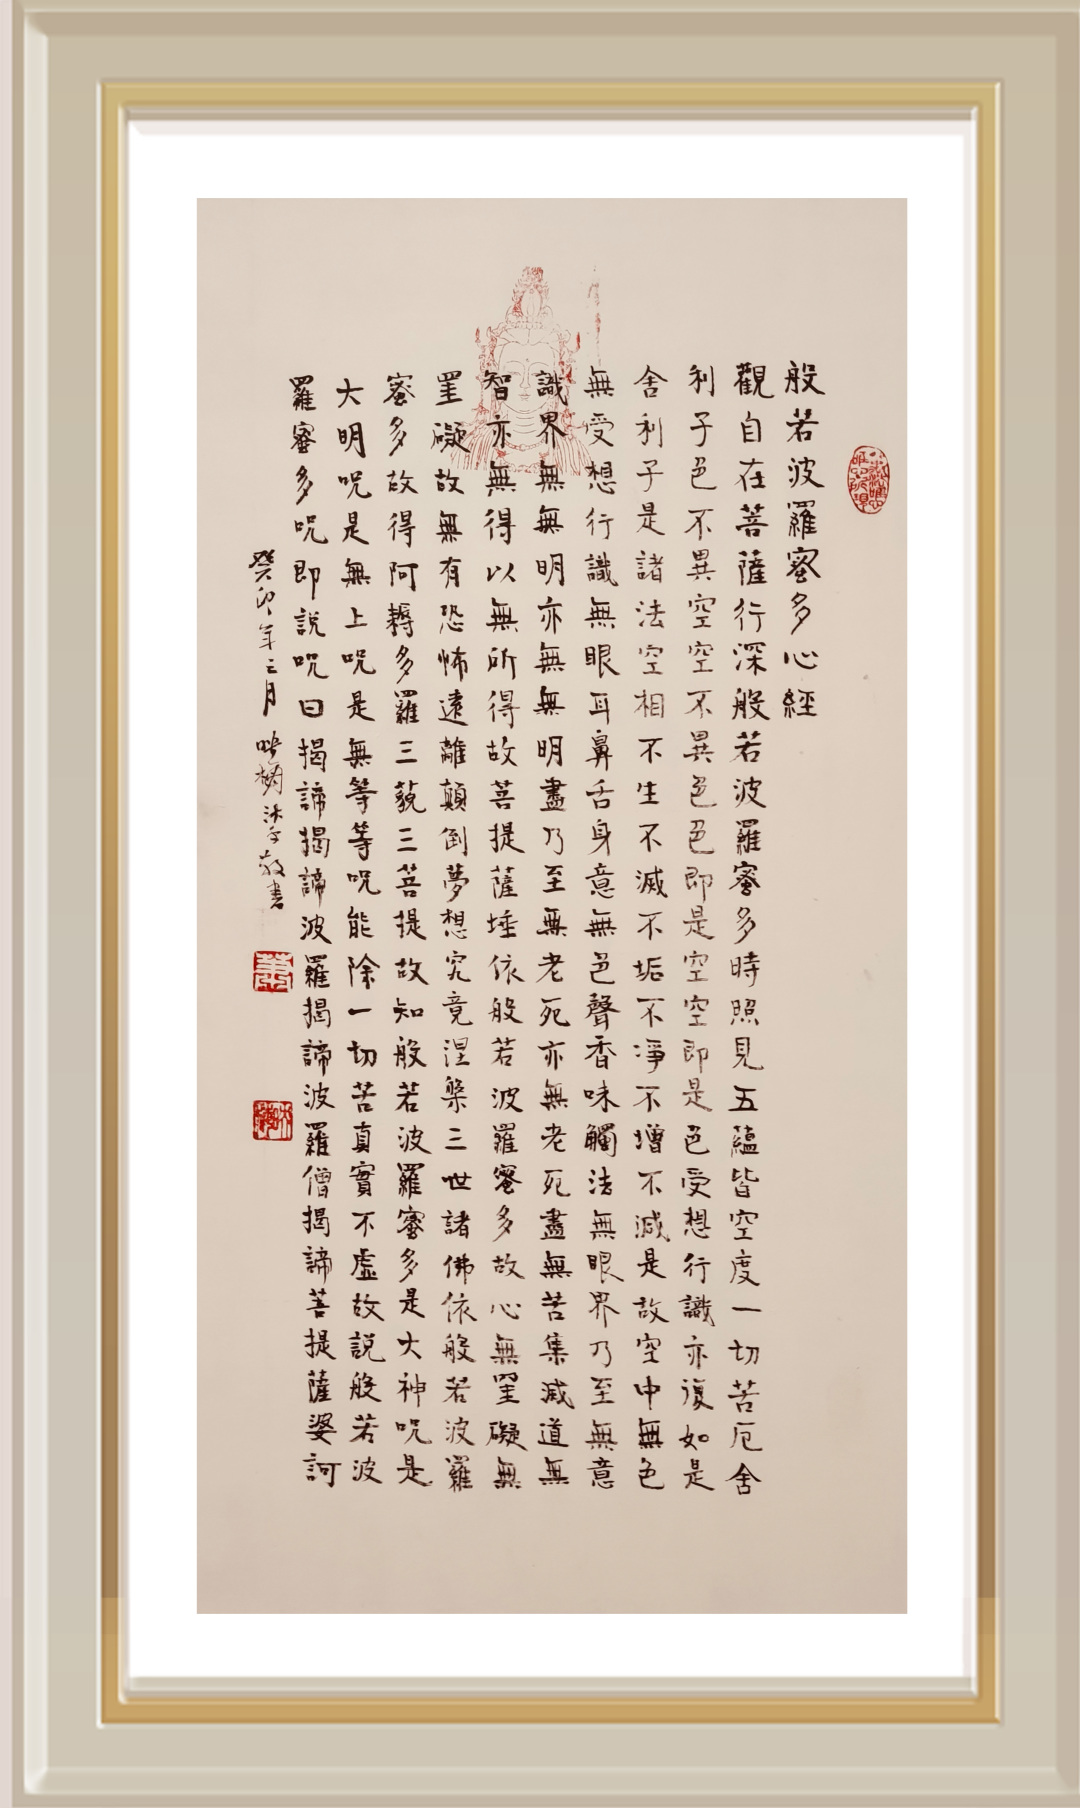 般若波羅蜜多心經
觀自在菩薩行深般若波羅蜜多時照見五蘊皆空度一切苦厄舍
利子色不異空空不異色色即是空空即是色受想行識亦復如是
舍利子是諸法空相不生不滅不垢不淨不增不減是故空中無色
無受想行識無眼耳鼻舌身意無色聲香味觸法無眼界乃至無意
識界無無明亦無無明盡乃至無老死亦無老死盡無苦集滅道無
智亦無得以無所得故菩提薩埵依般若波羅蜜多故心無罣礙無
罣礙故無有恐怖遠離顛倒夢想究竟涅槃三世諸佛依般若波羅
蜜多故得阿耨多羅三藐三菩提故知般若波羅蜜多是大神呪是
大明呪是無上呪是無等等呪能除一切苦真實不虛故説般若波
羅蜜多呪即説呪曰揭諦揭諦波羅揭諦波羅僧揭諦菩提薩婆訶
癸卯年二月沐手敬書